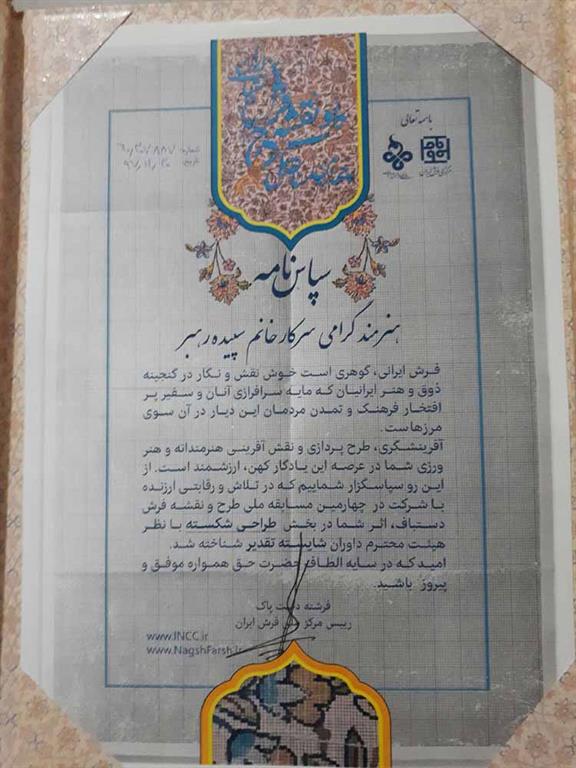 باسمه تعالی
شماره:
تاریخ:
مرکز ملی فرش ایران
سپاس نامه
هنرمند گرامی سرکار خانم سپیده رهبر
فرش ایرانی، گوهری است خوش نقش و نگار در گنجینه
ذوق و هنر ایرانیان که مایه سرافرازی آنان و سفیر پر
افتخار فرهنگ و تمدن مردمان این دیار در آن سوی
مرزهاست.
آفرینشگری، طرح پردازی و نقش آفرینی هنرمندانه و هنر
ورزی شما در عرصه این یادگار کهن، ارزشمند است. از
این رو سپاسگزار شماییم که در تلاش و رقابتی ارزنده
با شرکت در چهارمین مسابقه ملی طرح و نقشه فرش
دستباف، اثر شما در بخش طراحی شکسته با نظر
هیئت محترم داوران شایسته تقدیر شناخته شد.
امید که در سایه الطاف حضرت حق همواره موفق و
پیروز باشید.
فرشته دست پاک
رییس مرکز ملی فرش ایران
www.INCC.ir
www.NagshFarsh.ir